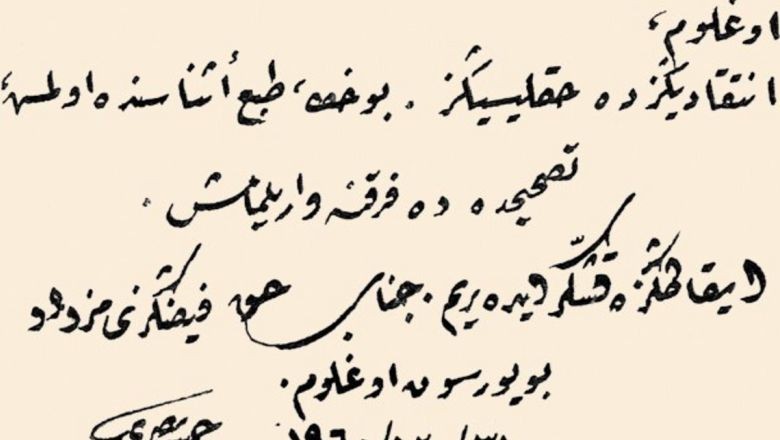 اوغلوم،
انتقادیڭزده حقلیسیڭز . بو خطا، طبع أثناسنده اولمش،
تصحیحده ده فرقنه واریلمامش .
ایقاظڭزه تشكّر ایده‌ریم . جناب حق فیضڭزی مزداد
بویورسون اوغلوم .